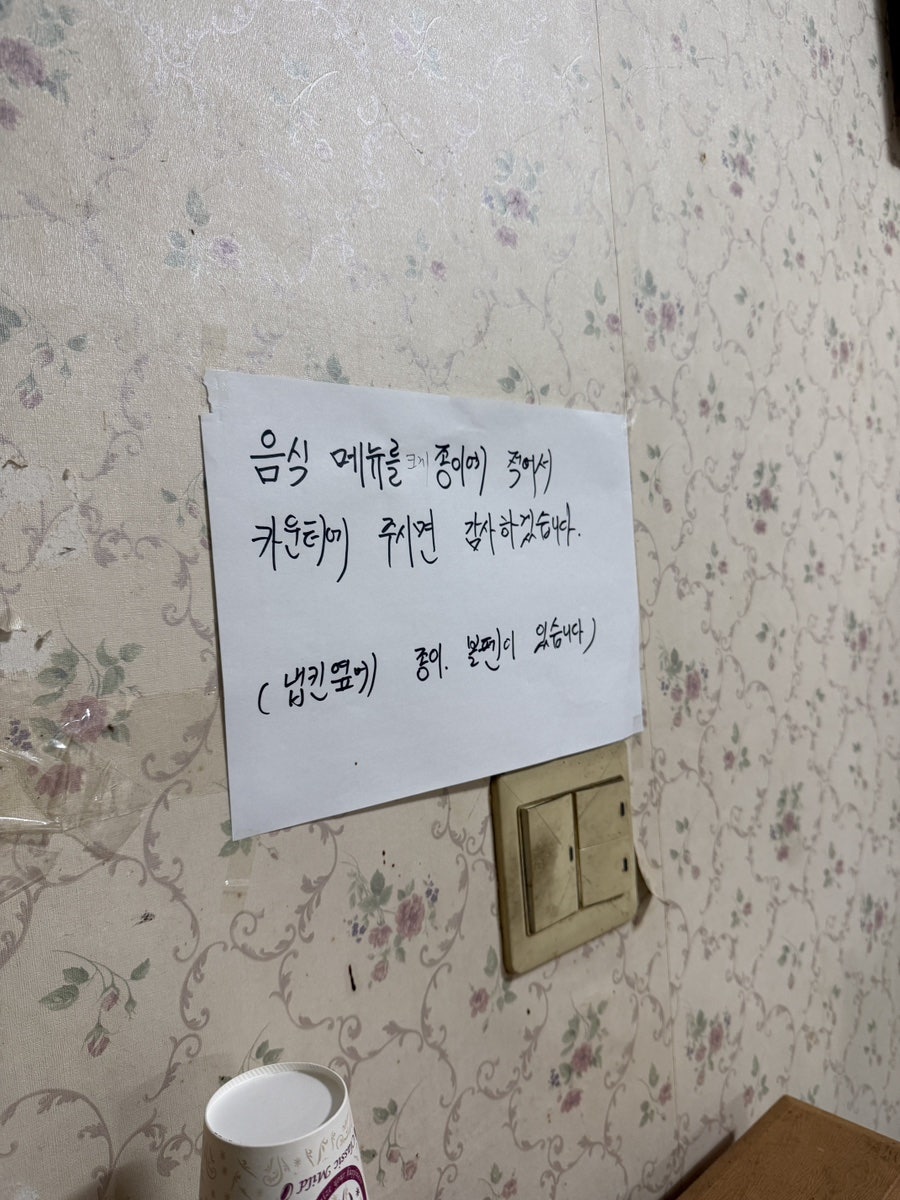 음식 메뉴를 크게 종이에 적어서
카운터에 주시면 감사하겠습니다.
( 냅킨 옆에 종이. 볼펜이 있습니다 )
Classic Mild